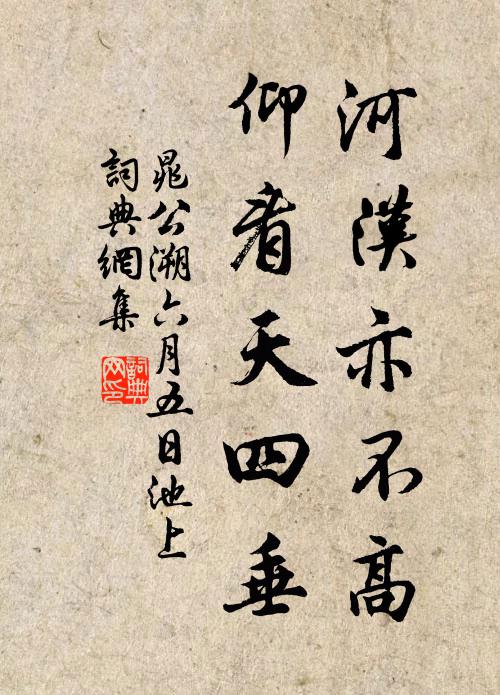 河漢亦不高
仰看天四垂
晁公溯六月五日池上
詞典網集
詞典
网印